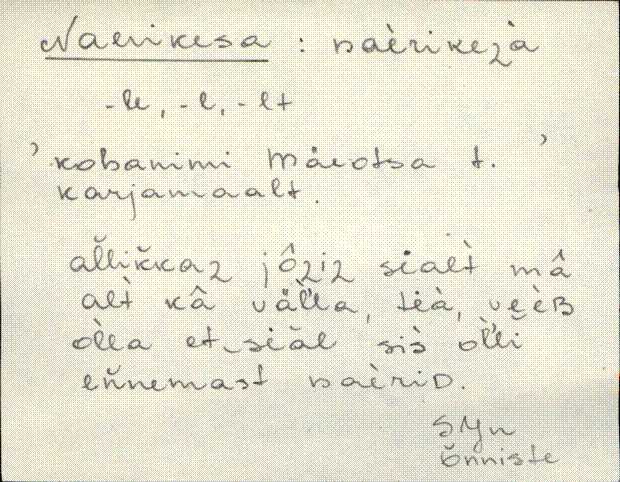 Naerikesa : naèrikezà
-le, -l, -lt
'kohanimi Mäeotsa t.'
karjamaalt.
al̆lik̆kaz jôziz sèalt̀ mâ
alt̀ kâ väl̆la, tèà, vȩèB
òlla et‿sèäl sìs òl̆li
en̆nemast naèriD.
SYn
Õnniste